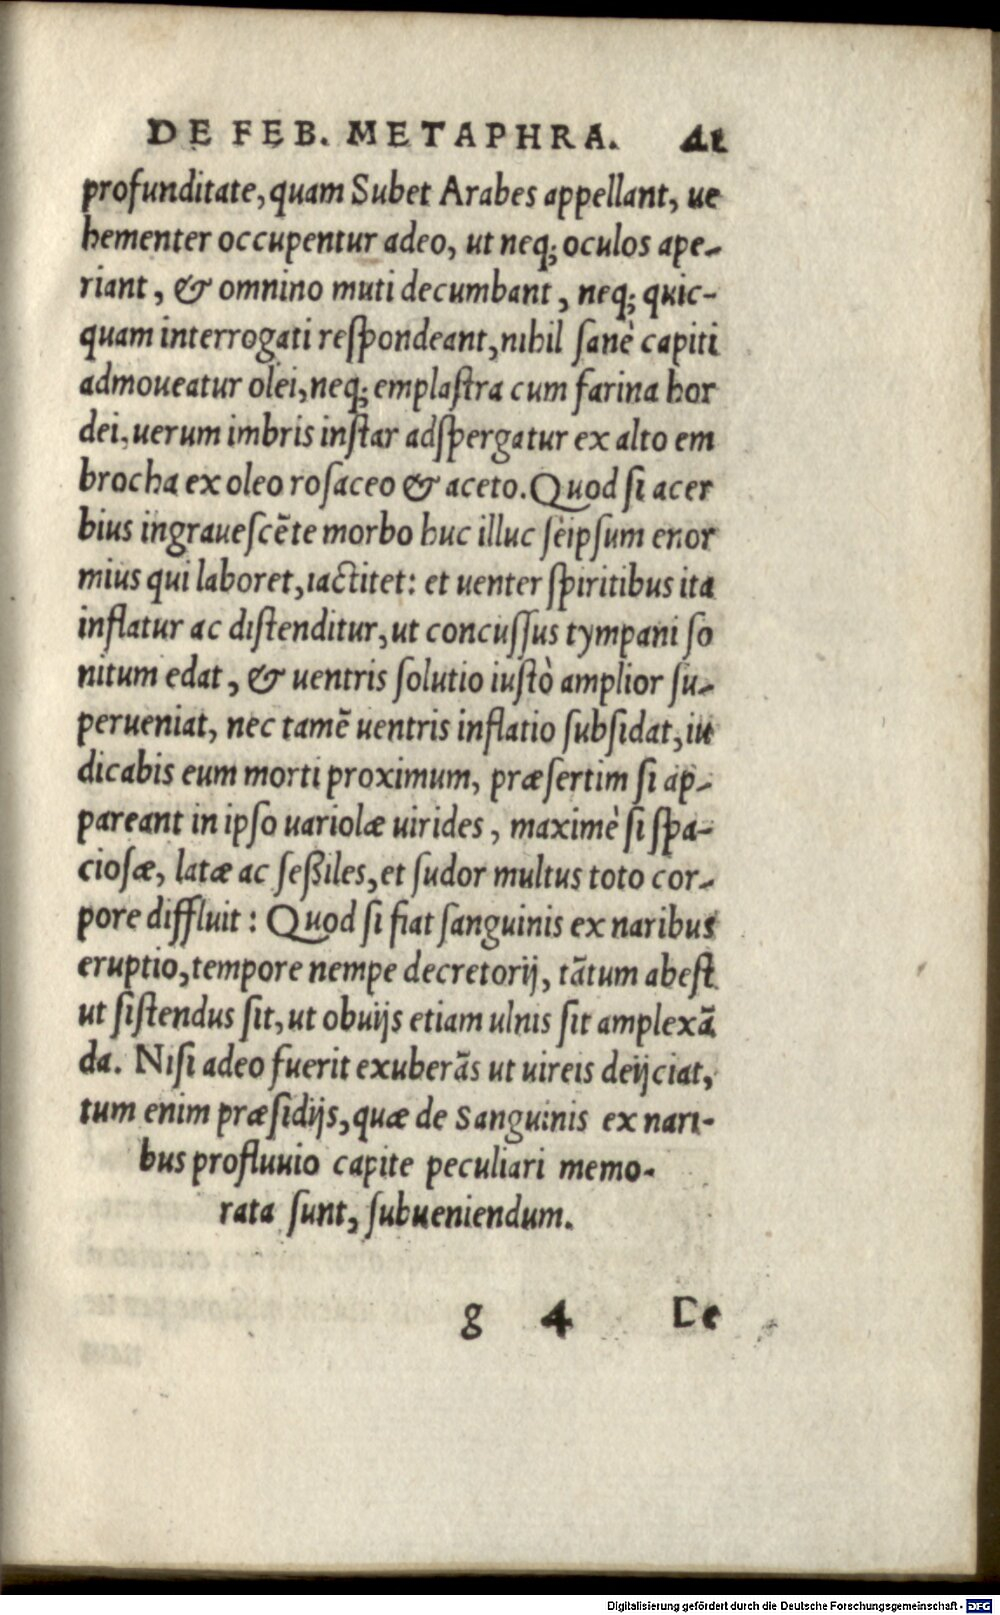 DE FEB. METAPHRA. 41
profunditate, quam Subet Arabes appellant, ue
hementer occupentur adeo, ut neq; oculos ape-
riant, & omnino muti decumbant, neq; quic-
quam interrogati reſpondeant, nihil ſanè capiti
admoueatur olei, neq; emplaſtra cum farina hor
dei, uerum imbris inſtar adſpergatur ex alto em
brocha ex oleo roſaceo & aceto. Quod ſi acer
bius ingraueſcēte morbo huc illuc ſeipſum enor
mius qui laboret, iactitet: et uenter ſpiritibus ita
inflatur ac diſtenditur, ut concuſſus tympani ſo
nitum edat, & uentris ſolutio iuſtò amplior ſu-
perueniat, nec tamē uentris inflatio ſubſidat, iu
dicabis eum morti proximum, præſertim ſi ap-
pareant in ipſo uariolæ uirides, maximè ſi ſpa-
cioſæ, latæ ac ſeßiles, et ſudor multus toto cor-
pore diffluit: Quod ſi fiat ſanguinis ex naribus
eruptio, tempore nempe decretorij, tātum abeſt
ut ſiſtendus ſit, ut obuijs etiam ulnis ſit amplexā
da. Niſi adeo fuerit exuberās ut uireis deijciat,
tum enim præſidijs, quæ de Sanguinis ex nari-
bus profluuio capite peculiari memo-
rata ſunt, ſubueniendum.
g 4 De
Digitalisierung gefördert durch die Deutsche Forschungsgemeinschaft - DFG